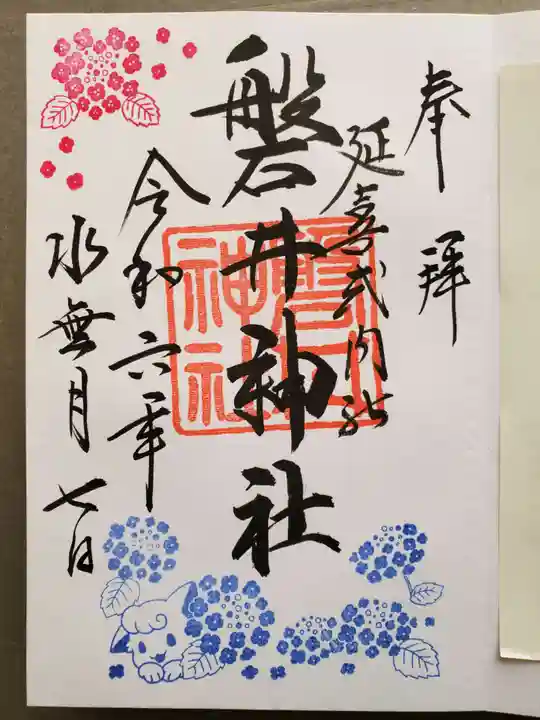 奉拝
延喜式内社
磐井神社
磐井神社
令和六年
水無月七日